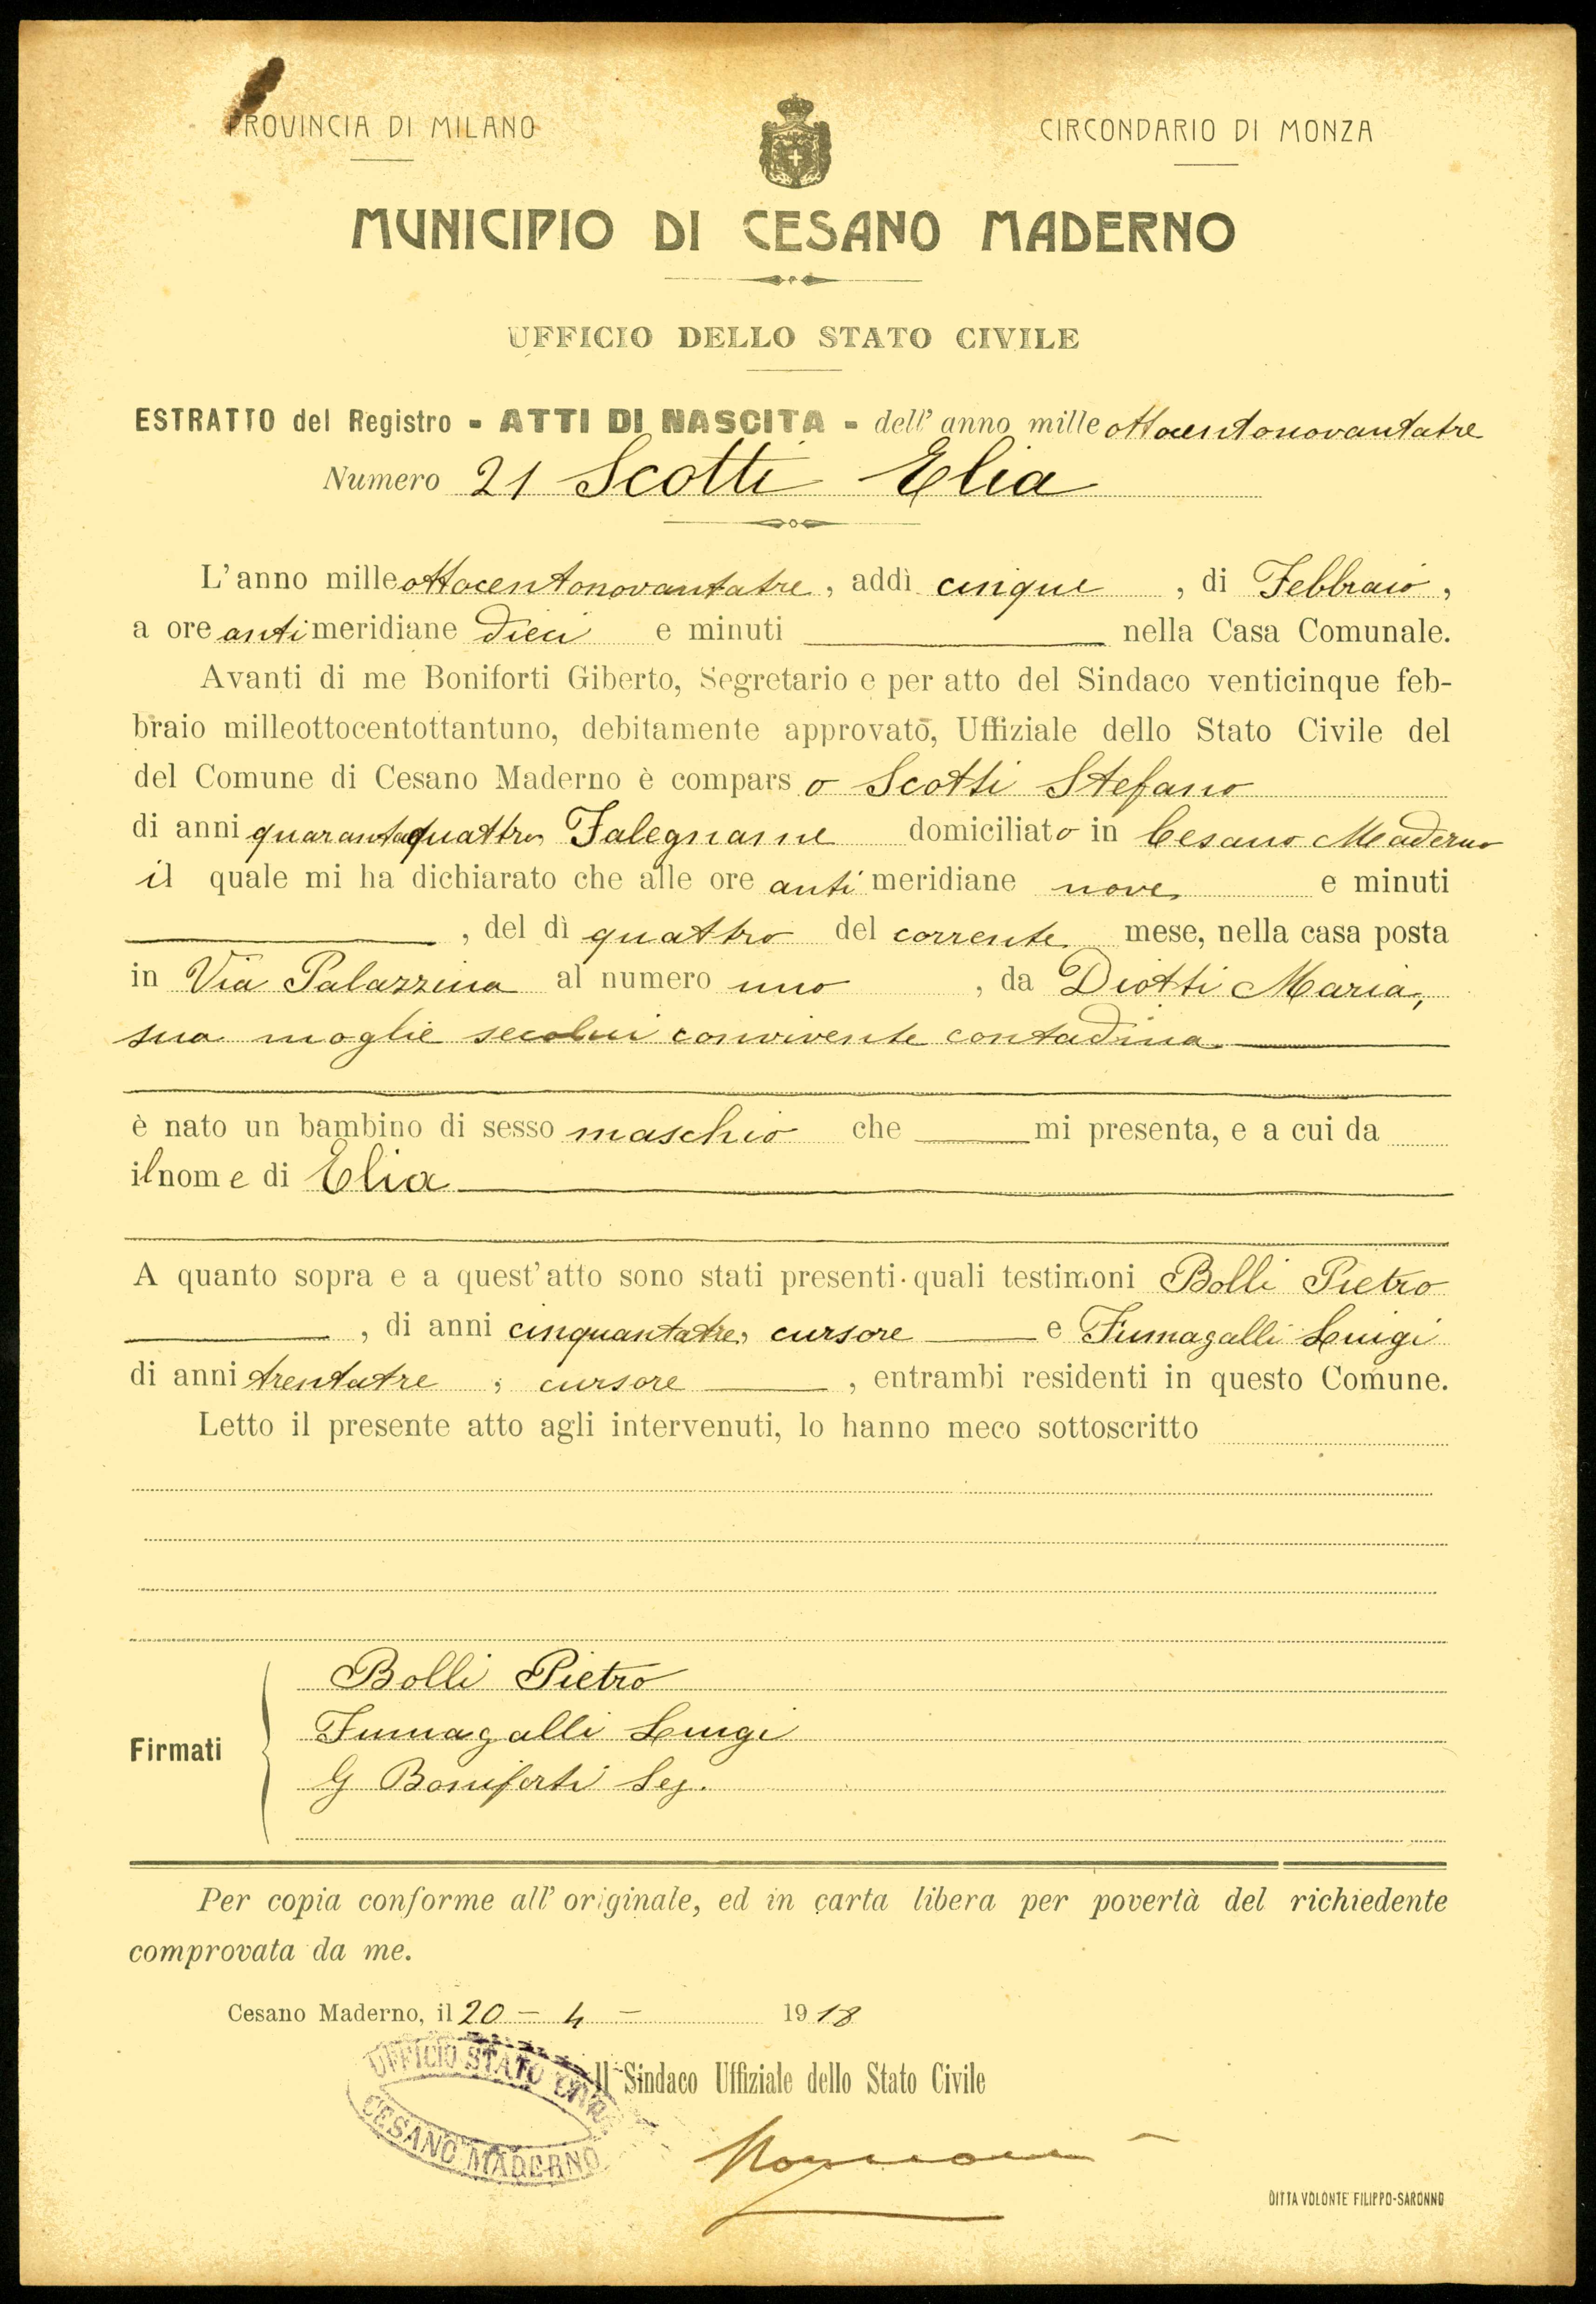 PROVINCIA DI MILANO
CIRCONDARIO DI MONZA
MUNICIPIO DI CESANO MADERNO
UFFICIO DELLO STATO CIVILE
ESTRATTO del Registro - ATTI DI NASCITA - dell' anno mille ottocentonovantatre
Numero 21 Scotti Elia
L'anno mille ottocentonovantatre, addì cinque, di Febbraio,
a ore antimeridiane dieci e minuti nella Casa Comunale.
Avanti di me Boniforti Giberto, Segretario e per atto del Sindaco venticinque feb-
braio milleottocentottantuno, debitamente approvato, Uffiziale dello Stato Civile del
del Comune di Cesano Maderno è comparso Scotti Stefano
di anni quarantaquattro, Falegname domiciliato in Cesano Maderno
il quale mi ha dichiarato che alle ore antimeridiane nove, e minuti
, del dì quattro del corrente mese, nella casa posta
in Via Palazzina al numero uno, da Diotti Maria,
sua moglie secolui convivente contadina
è nato un bambino di sesso maschio che mi presenta, e a cui da
il nome di Elia
A quanto sopra e a quest'atto sono stati presenti quali testimoni Bolli Pietro
, di anni cinquantatre, cursore e Fumagalli Luigi
di anni trentatre, cursore, entrambi residenti in questo Comune.
Letto il presente atto agli intervenuti, lo hanno meco sottoscritto
Firmati
Bolli Pietro
Fumagalli Luigi
G Boniforti Seg.
Per copia conforme all' originale, ed in carta libera per povertà del richiedente
comprovata da me.
Cesano Maderno, il 20 - 4 - 1918
UFFICIO STATO CIVILE
CESANO MADERNO
Il Sindaco Uffiziale dello Stato Civile
DITTA VOLONTE' FILIPPO-SARONNO